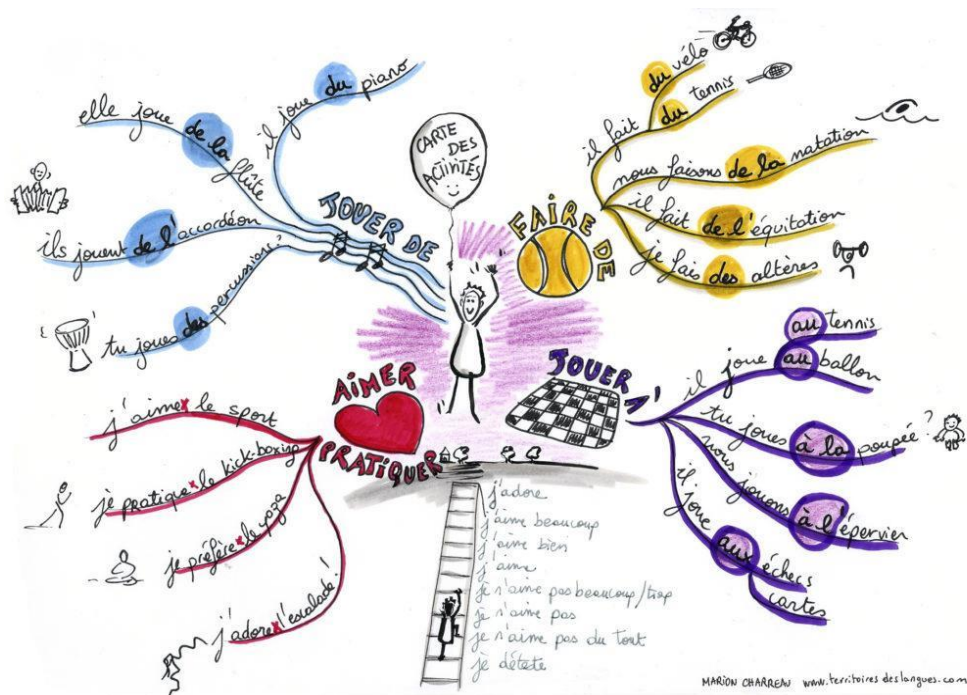 CARTE
DES
ACTIVITÉS
JOUER DE
il joue du piano
elle joue de la flûte
ils jouent de l'accordéon
tu joues des percussions?
FAIRE DE
il fait du vélo
du tennis
nous faisons de la natation
il fait de l'équitation
je fais des altères
JOUER A'
il joue au tennis
au ballon
tu joues à la poupée?
nous jouons à l'épervier
il joue aux échecs
cartes
AIMER
PRATIQUER
j'aime x le sport
je pratique x le kick-boxing
je préfère x le yoga
j'adore x l'escalade!
j'adore
j'aime beaucoup
j'aime bien
j'aime
je n'aime pas beaucoup/trop
je n'aime pas
je n'aime pas du tout
je déteste
MARION CHARREAU www.territoiresdeslangues.com